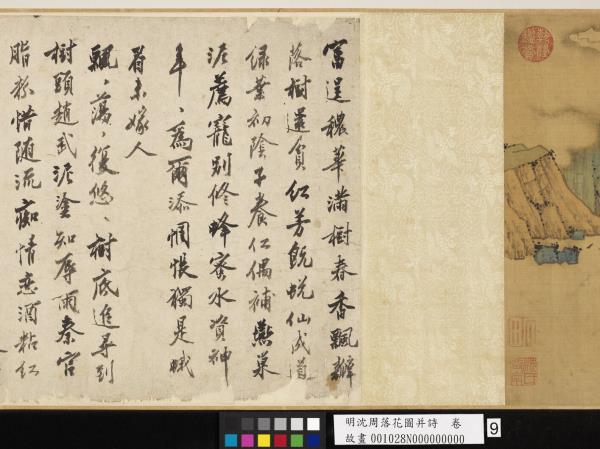 富逞穠華滿樹春香飄瓣
落樹還貧紅芳既蛻仙成道
綠葉初陰子養仁偶補燕巢
泥薦寵別修蜂蜜水資神
年〻為爾添惆悵獨是蛾
眉未嫁人
飄〻蕩〻復悠〻樹底追尋到
樹頭趙武泥塗知辱雨秦宮
脂粉惜隨流痴情戀酒粘紅
明沈周落花圖并詩 卷
故畫 001028N000000000
9